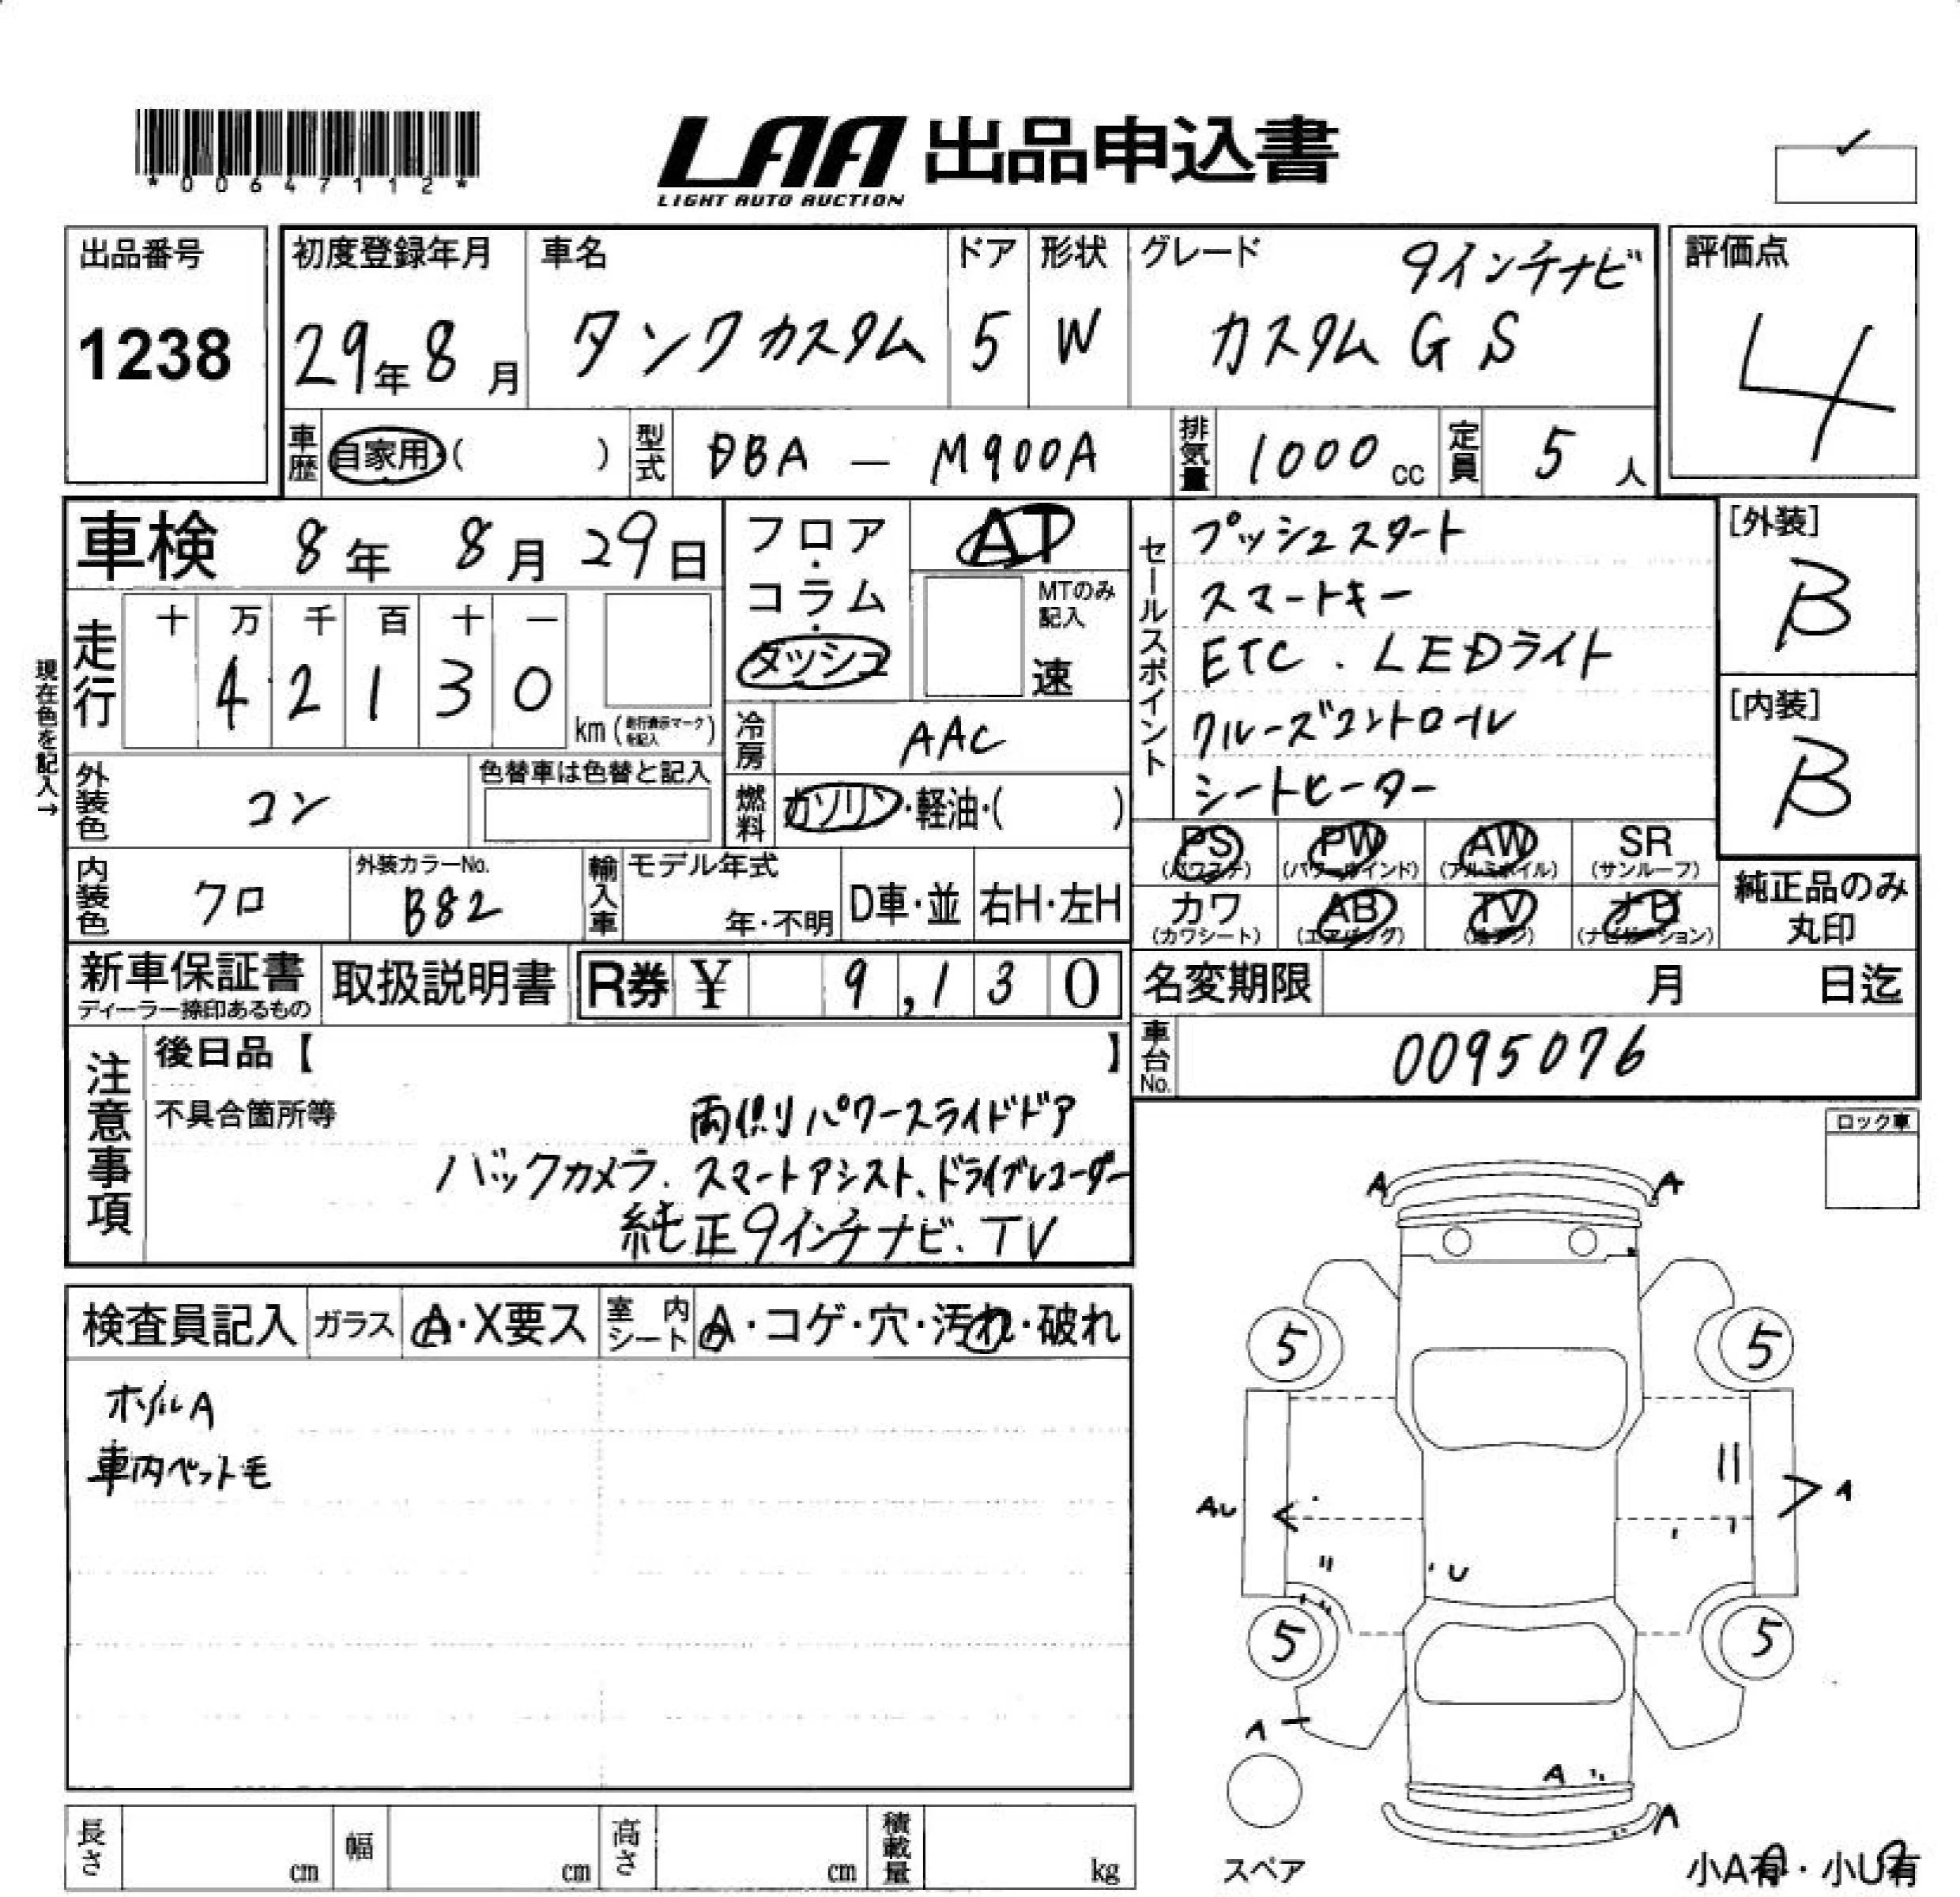 *00647112*
LAA 出品申込書
LIGHT AUTO AUCTION
出品番号
1238
初度登録年月
29年8月
車名
タンクカスタム
ドア
5
形状
W
グレード
9インチナビ
カスタム G S
評価点
4
車歴
自家用・( )
型式
DBA - M900A
排気量
1000cc
定員
5人
車検 8年 8月 29日
走行
十 万 千 百 十 一
4 2 1 3 0
km(走行表示マークを記入)
現在色を記入→
外装色
コン
色替車は色替と記入
内装色
クロ
外装カラーNo.
B82
フロア・コラム・ダッシュ
AT
MTのみ記入
速
冷房
AAC
燃料
ガソリン・軽油・( )
輸入車
モデル年式
年・不明
D車・並
右H・左H
セールスポイント
プッシュスタート
スマートキー
ETC . LEDライト
クルーズコントロール
シートヒーター
[外装]
B
[内装]
B
PS PW AW SR
(パワステ) (パワーウインド) (アルミホイル) (サンルーフ)
カワ AB TV ナビ
(カワシート) (エアバッグ) (ナビゲーション)
純正品のみ
丸印
新車保証書
ディーラー捺印あるもの
取扱説明書
R券 ¥ 9,130
名変期限 月 日迄
車台No.
0095076
注意事項
後日品【 】
不具合箇所等
両側パワースライドドア
バックカメラ. スマートアシスト、ドライブレコーダー
純正9インチナビ. TV
ロック車
検査員記入
ガラス
A・X要ス
室内シート
A・コゲ・穴・汚れ・破れ
ホイルA
車内ペット毛
A A
5 5
AU A
U
5 5
A
A
A
スペア
小A有・小U有
長さ cm
幅 cm
高さ cm
積載量 kg